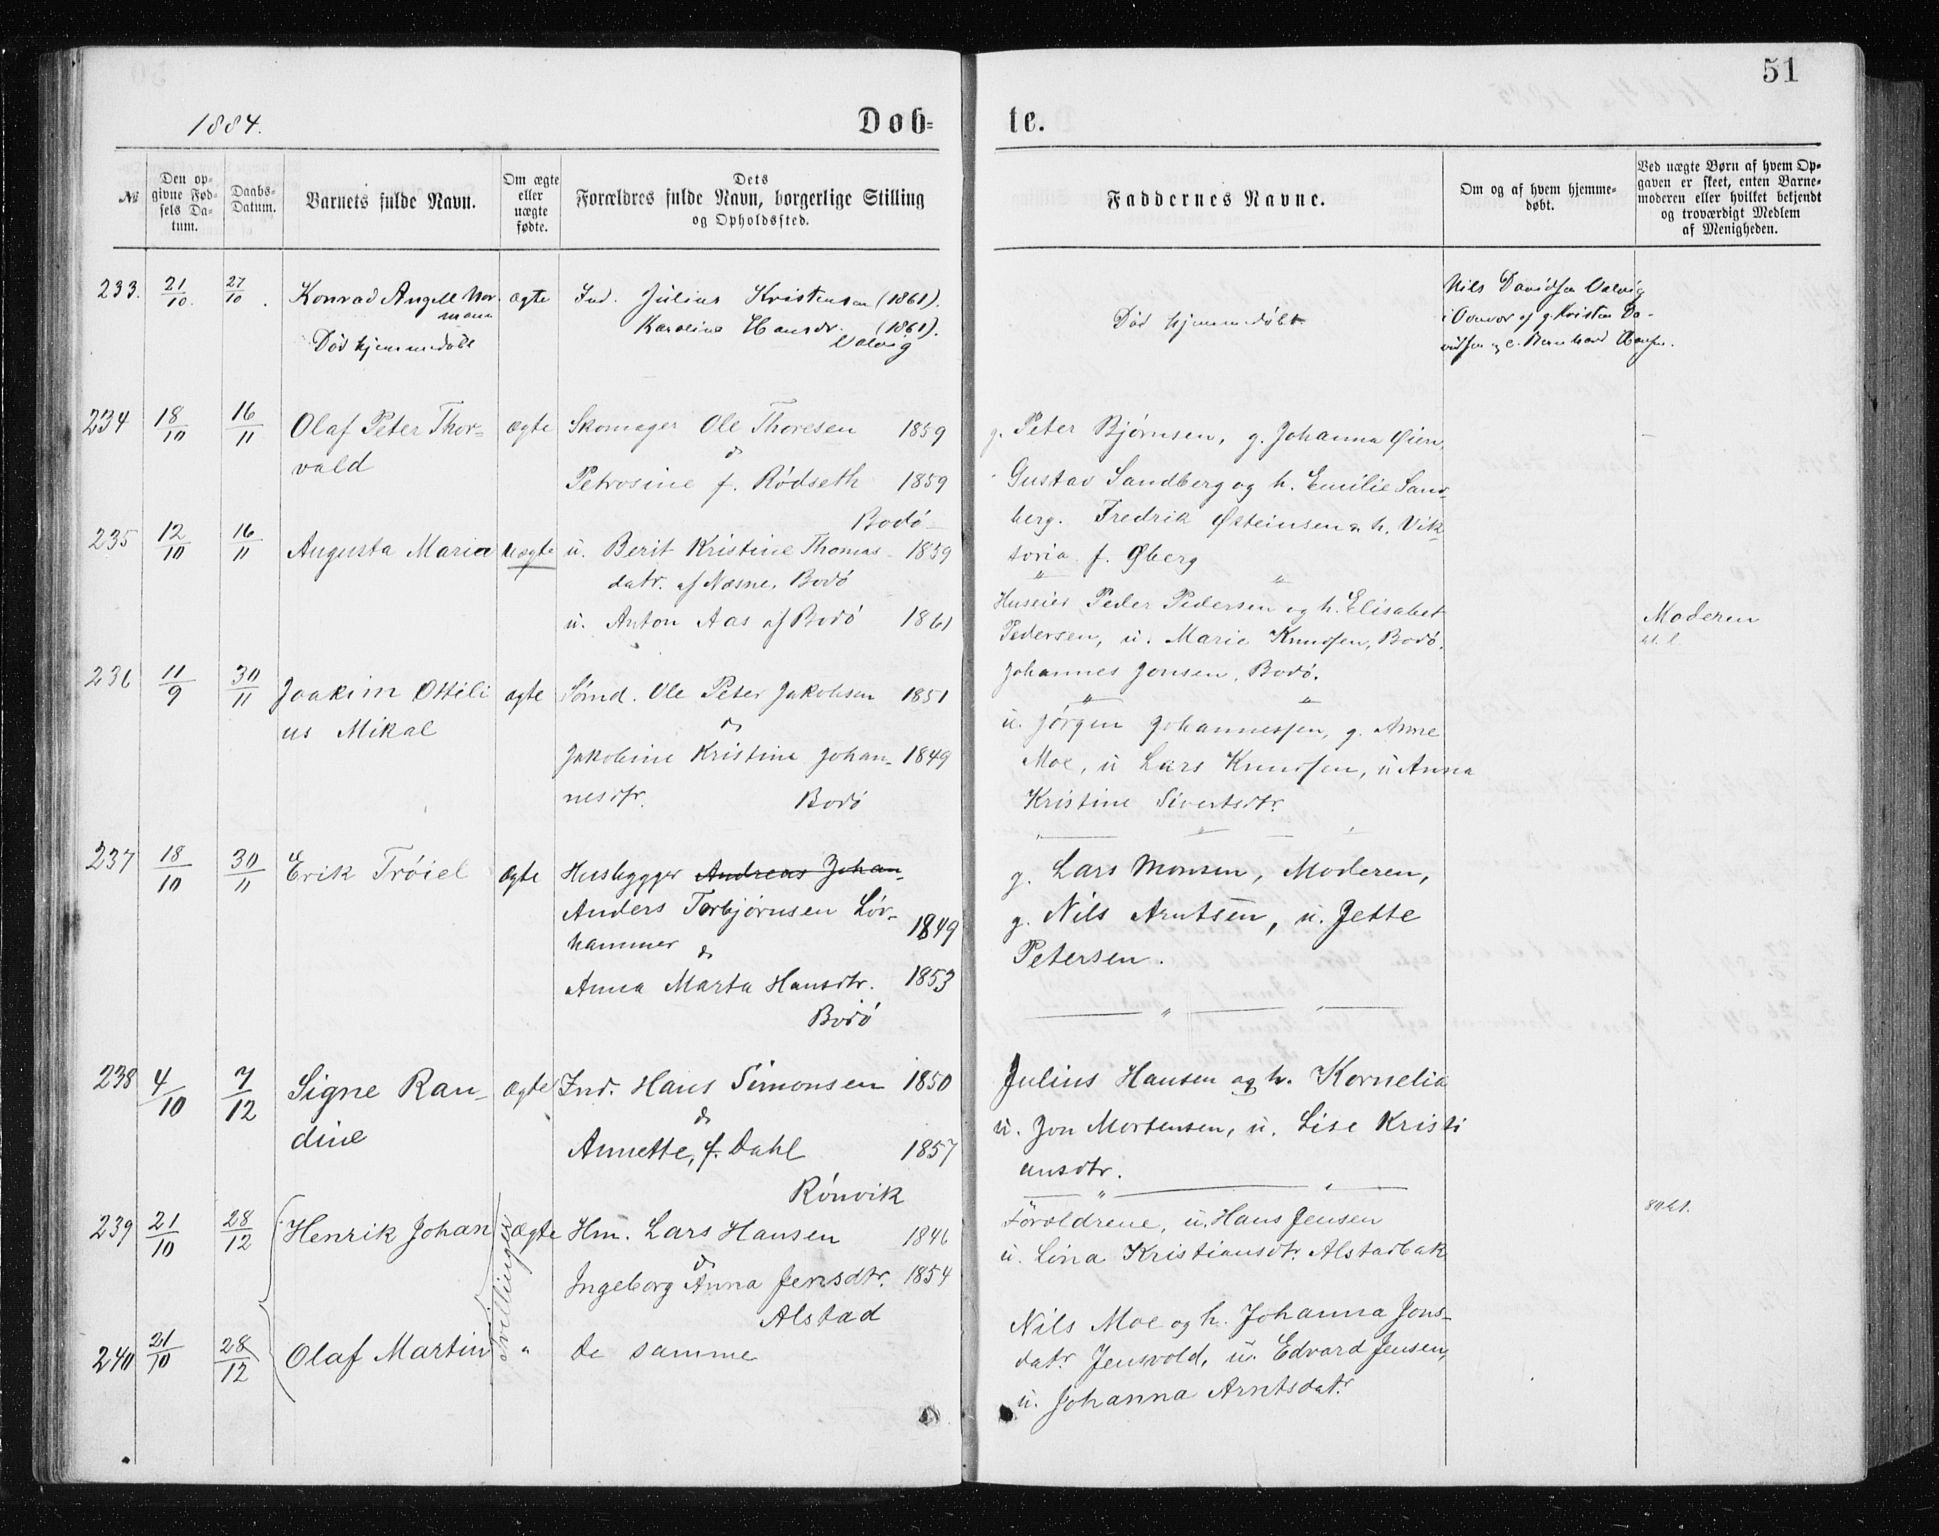 51
1884.
Døb-
te.
No
Den op-
givne Fød-
sels Da-
tum.
Daabs-
Datum.
Barnets fulde Navn.
Om ægte
eller
uægte
fødte.
Dets
Forældres fulde Navn, borgerlige Stilling
og Opholdssted.
Faddernes Navne.
Om og af hvem hjemme-
døbt.
Ved uægte Børn af hvem Op-
gaven er skeet, enten Barne-
moderen eller hvilket bekjendt
og troværdigt Medlem
af Menigheden.
233. 21/10. 27/10. Konrad Angell Nor- ægte Ind. Julius Kristensen (1861).
mann Karoline Hansdr. (1861).
Død hjemmedøbt Valvig
Død hjemmedøbt
Nils Davidsen Valvig
af g. Kristen Da-
vidsen og Bernhard Hansen.
234 18/10 16/11 Olaf Peter Thor- ægte Skomager Ole Thoresen 1859
vald &
Petrosine f. Rødseth 1859
Bodø
g. Peter Bjørnsen, g. Johanna Øien,
Gustav Sandberg og h. Emilie Sand-
berg. Fredrik Østeinsen & h. Vik-
toria f. Øberg
235 12/10 16/11 Augusta Maria uægte u. Berit Kristine Thomas- 1859
datr. af Næsne, Bodø
u. Anton Aas af Bodø 1861
Huseier Peder Pedersen og h. Elisabet
Pedersen, u. Marie Knudsen, Bodø.
Johannes Jonsen, Bodø.
Moderen
236 11/9 30/11 Joakim Ottili ægte Sømd. Ole Peter Jakobsen 1851
us Mikal &
Jakobine Kristine Johan- 1849
nesdtr. Bodø
u. Jørgen Johannessen, g. Anne
Moe, u Lars Knudsen, u Anna
Kristine Sivertsdtr.
237 18/10 30/11 Erik Trøiel ægte Husbygger Andreas Johan-
Anders Torbjørnsen Løv-
hammer & 1849
Anna Marta Hansdtr. 1853
Bodø
g. Lars Monsen, Moderen,
g. Nils Arntsen, u. Jette
Petersen.
238 4/10 7/12 Signe Ran- ægte Ind. Hans Simonsen 1850
dine &
Annette, f. Dahl 1857
Rønvik
Julius Hansen og h. Kornelia
u. Jon Mortensen, u. Lise Kristi
ansdtr.
239 21/10 28/12 Henrik Johan ægte Hm. Lars Hansen 1846
&
Ingeborg Anna Jensdtr. 1854
Alstad
Tvillinger
Forældrene, u. Hans Jensen
u. Lina Kristiansdtr. Alstadbak
240 21/10 28/12 Olaf Martin " De samme
Nils Moe og h. Johanna Jons-
datr. Jensvold, u. Edvard Jensen,
u. Johanna Arntsdatr.